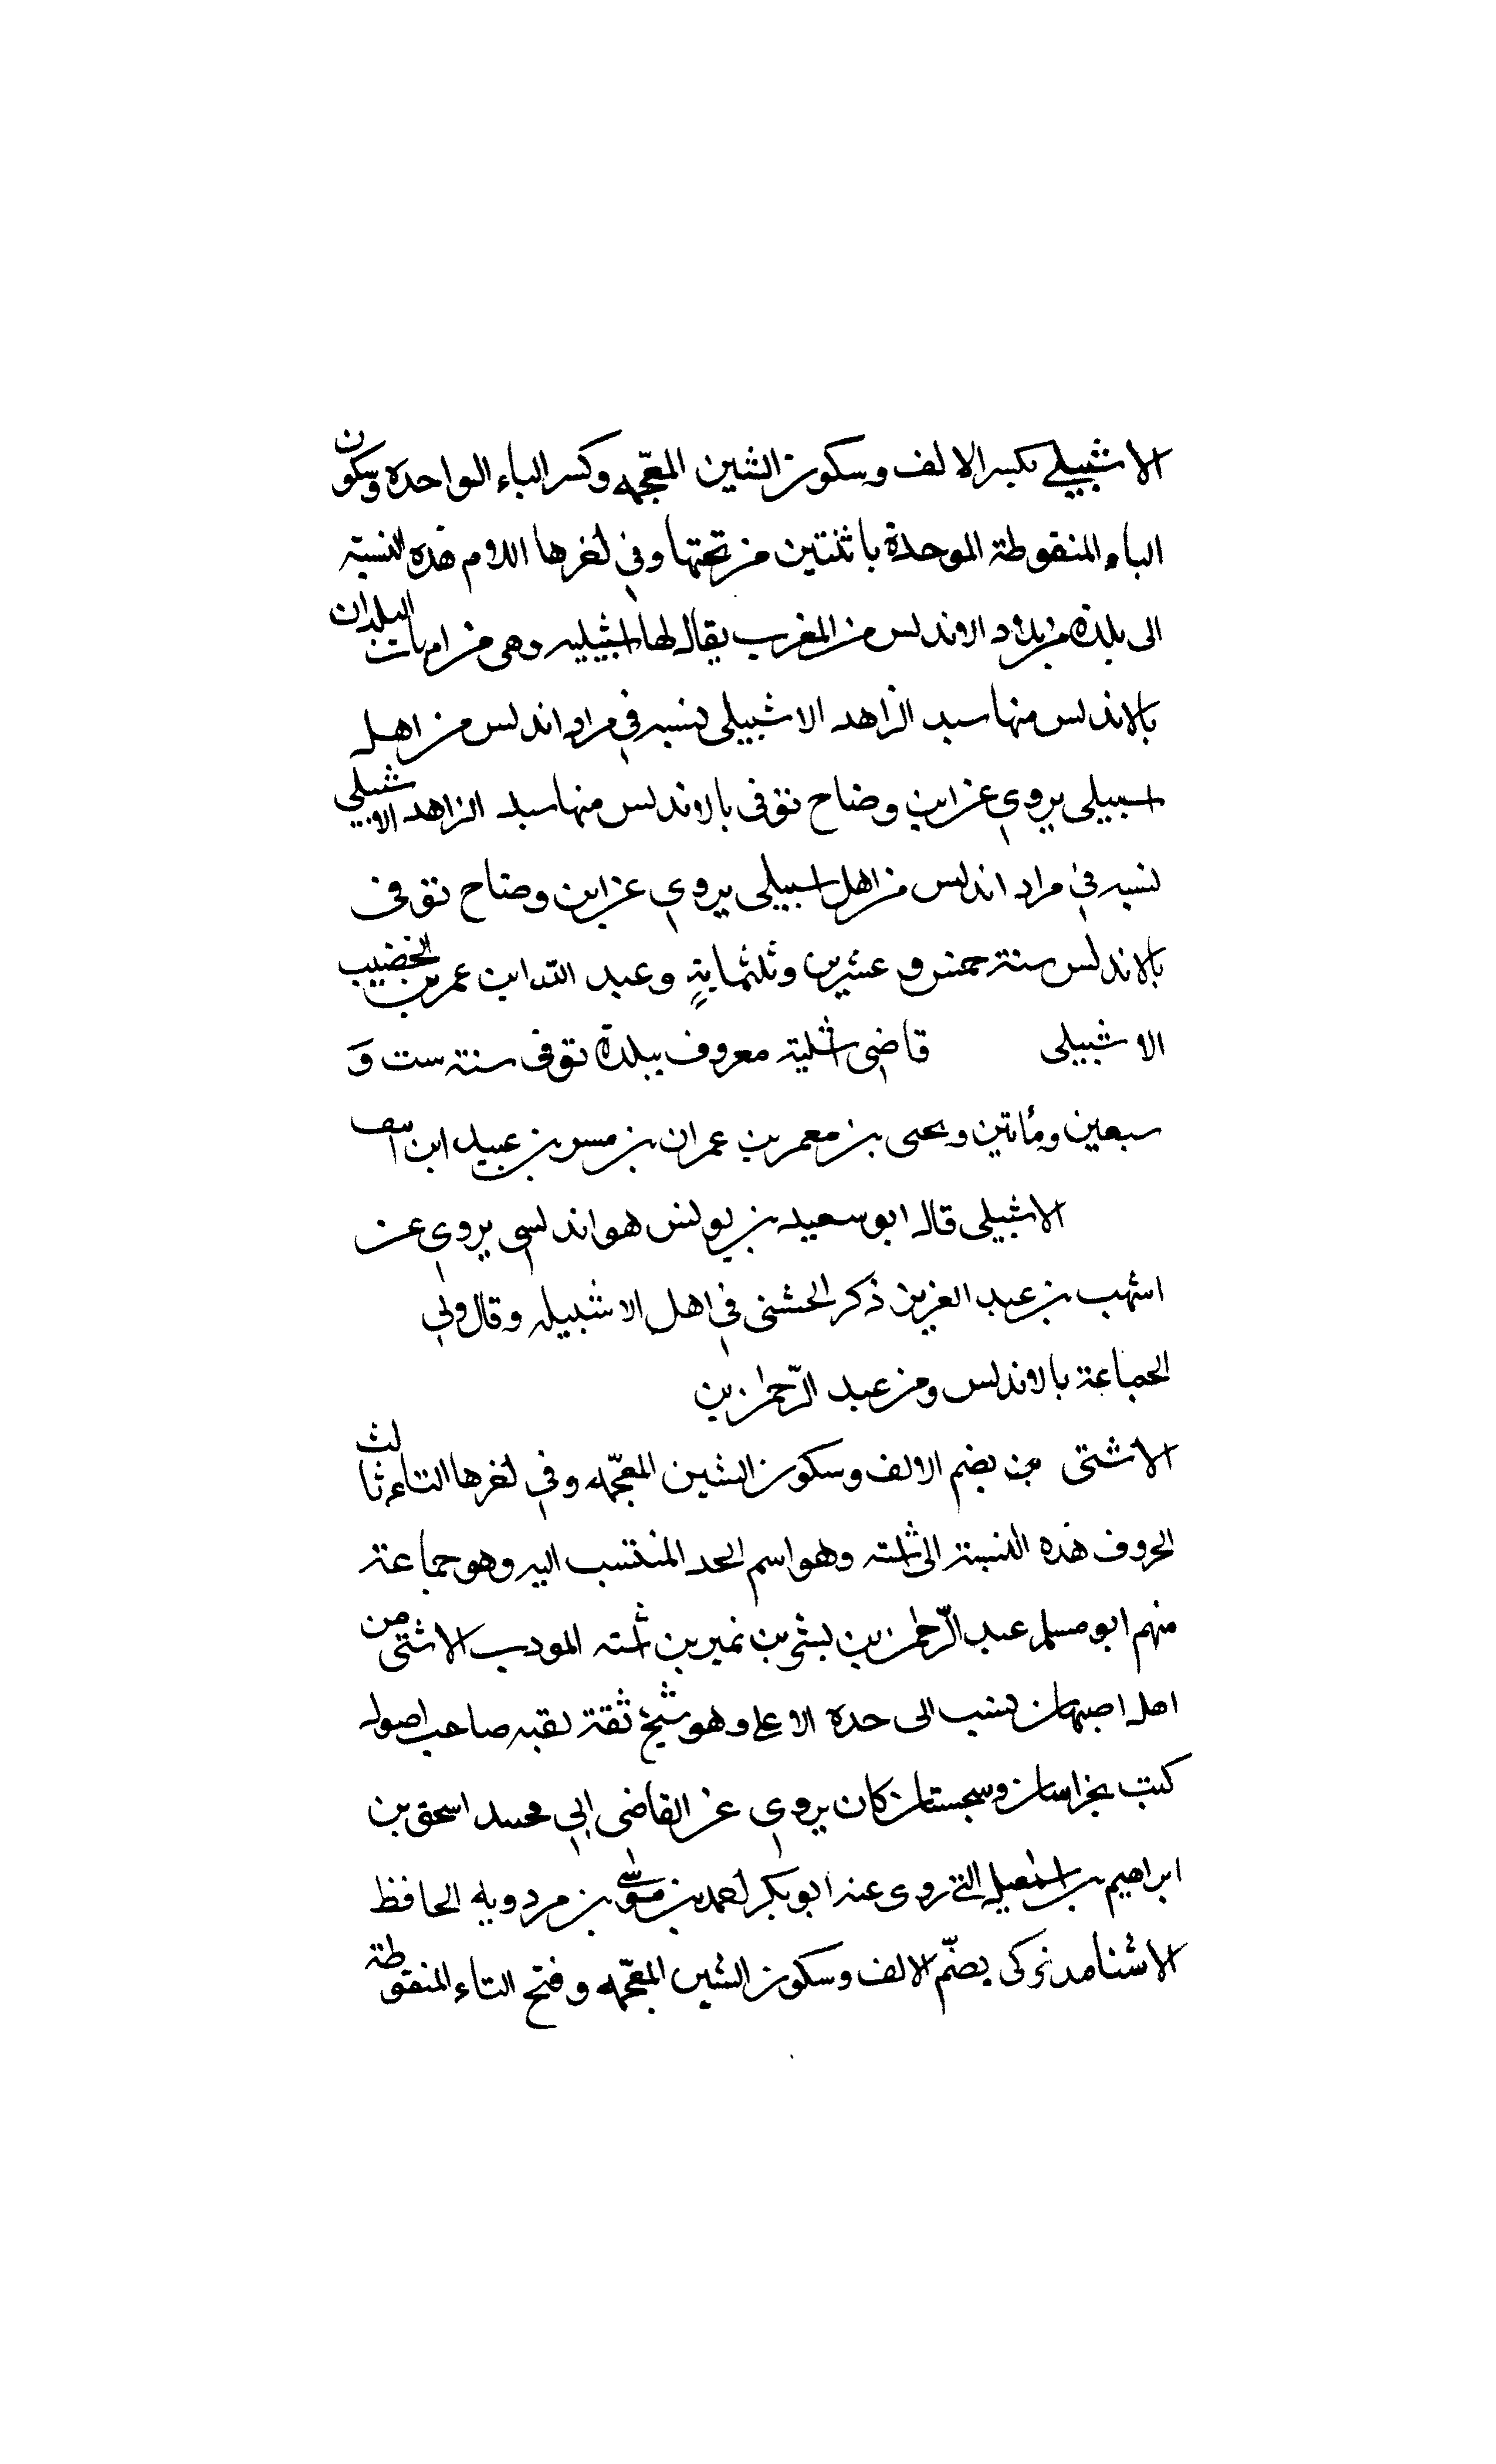 الاشبيلي بكسر الالف وسكون الشين المعجمه وكسر الباء الواحدة وسكون
الباء المنقوطة الموحدة باثنتين من تحتها وفي اخرها اللام هذه النسبة
الى بلدة من بلاد الاندلس من المغرب يقال لها اشبيليه وهى من امهات البلدان
بالاندلس منها سيد الزاهد الاشبيلى نسبه في مراد اندلس من اهل
اسبيلى يروي عن ابن وضاح توفى بالاندلس منها سيد الزاهد الاشبيلي
نسبه في مراد اندلس من اهل اسبيلى يروي عن ابن وضاح توفى
بالاندلس سنة خمس و عشرين وثلثماية وعبد الله ابن عمر بن الخضيب
الاشبيلى قاضي اشلية معروف ببلدة توفى سنة ست و
سبعين ومأتين ويحيى بن معمر بن عمران بن مسر بن عبيد ابن
الاشبيلى قال ابو سعيد بن يونس هو اندلسى يروى عن
اشهب بن عبد العزيز ذكر الخشنى في اهل الاشبيله وقال ولي
الجماعة بالاندلس ومن عبد الرّحمن بن
الاشتى من بضم الالف وسكون الشين المعجّمه وفي اخرها التاء ثالث
الحروف هذه النسبة الى اشته وهو اسم الجد المنتسب اليه وهو جماعة
منهم ابو مسلم عبد الرّحمن بن بشر بن نمير بن اشته المودب الاشتى من
اهل اصبهان ينسب الى جده الاعلى وهو شيخ ثقة لقبه صاحب اصول
كتب بخراسان وسجستان كان يروي عن القاضى ابي محمد اسحق بن
ابراهيم بن اسمعيل البستي روى عنه ابو بكر احمد بن موسى بن مردويه الحافظ
الاشتا بضّم الالف وسكون الشين المعجّمه وفتح التاء المنقوطة